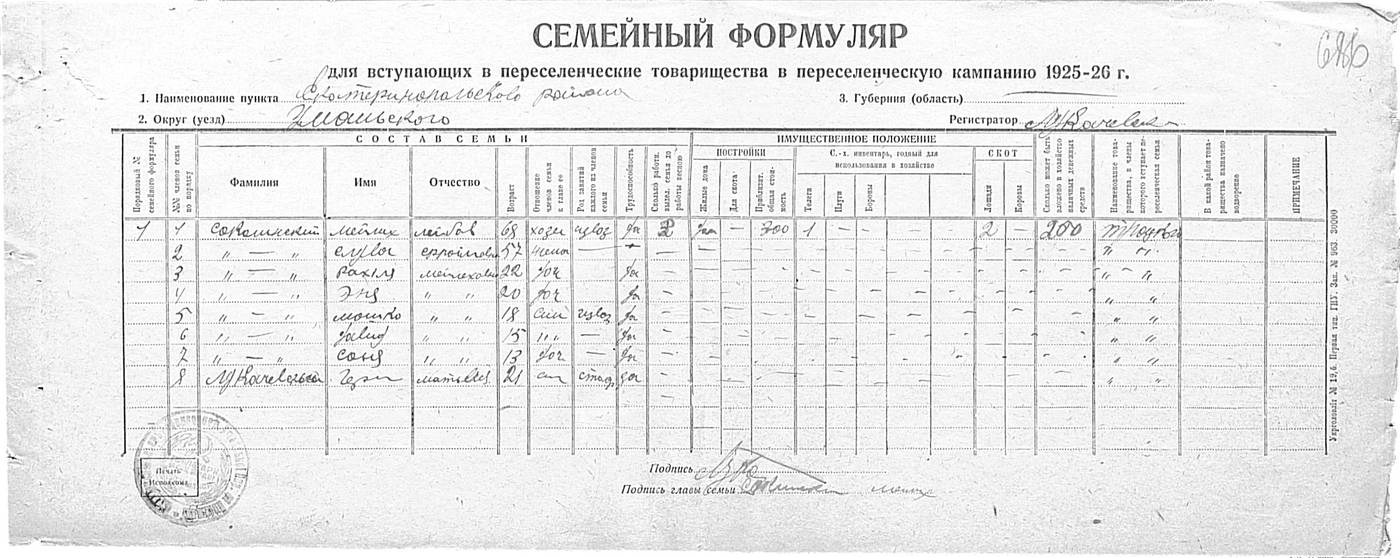 СЕМЕЙНЫЙ ФОРМУЛЯР
686
для вступающих в переселенческие товарищества в переселенческую кампанию 1925-26 г.
1. Наименование пункта Екатеринопольского района 3. Губерния (область)
2. Округ (уезд) Уманьского Регистратор
СОСТАВ СЕМЬИ ИМУЩЕСТВЕННОЕ ПОЛОЖЕНИЕ
ПОСТРОЙКИ С.-х. инвентарь, годный для использования в хозяйстве СКОТ
Порядковый № семейного формуляра №№ членов семьи по порядку Фамилия Имя Отчество Возраст Отношение членов семьи к главе ее Род занятий каждого из членов семьи Трудоспособность Сколько работн. выдел. семья до работы весною Жилые дома Для скота Приблизит. общая стоимость Телеги Плуги Бороны Лошади Коровы Сколько может быть вложено в хозяйство наличных денежных средств Наименование товарищества, в члены которого вступает переселенческая семья В какой район товарищества назначено водворение ПРИМЕЧАНИЕ
1 1 Соколинский Мейлих Лейбов 68 хозя извоз да 2 — 300 1 — — — — — 2 — 200
2 „ — „ Слува 57 жена — да — — — — — — — — — — — „ „
3 „ — „ Рахиля 22 доч — да — — — — — — — — — — — „ „
4 „ — „ Эня „ „ 20 доч — да — — — — — — — — — — — „ „
5 „ — „ Мошко „ „ 18 син извоз да — — — — — — — — — — — „ „
6 „ — „ Давид „ „ 15 „ „ — да — — — — — — — — — — — „ „
7 „ — „ Соня „ „ 13 доч — да — — — — — — — — — — — „ „
8 21 да — — — — — — — — — — — „ „
Печать Исполкома.
Подпись
Подпись главы семьи
Укрголовлит № 19,6. Первая тип. ГИУ. Зак. № 963. 30000